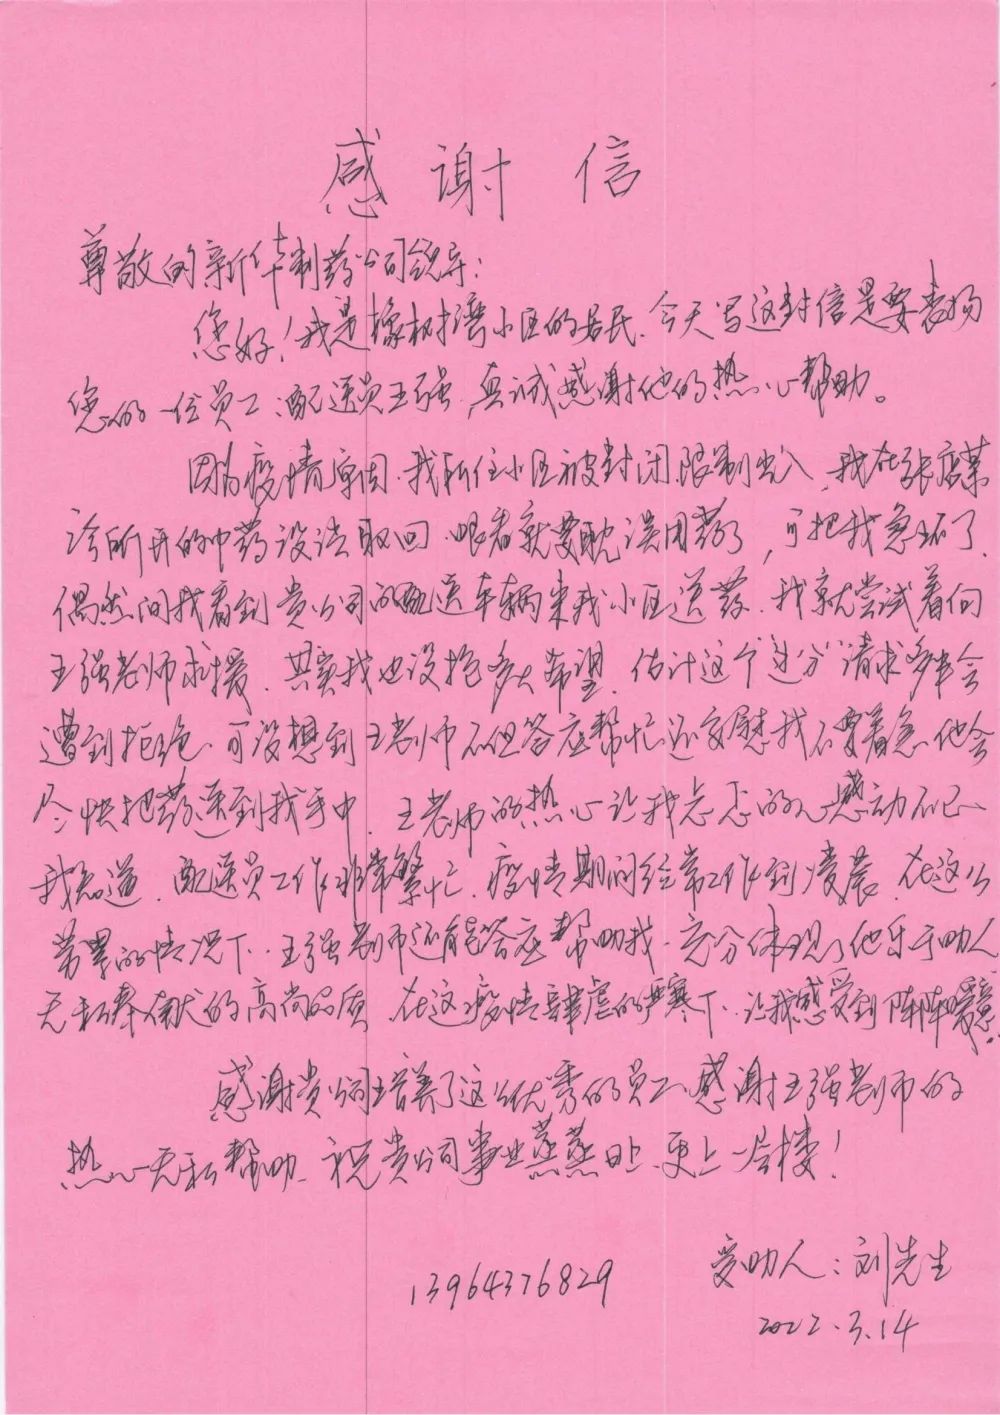 感谢信
尊敬的新华制药公司领导：
您好！我是橡树湾小区的居民、今天写这封信是要表扬
您的一位员工:配送员王强,真诚感谢他的热心帮助。
因为疫情原因、我所住小区被封闭、限制出入,我在张店某
诊所开的中药没法取回、眼看就要耽误用药了,可把我急坏了、
偶然间我看到贵公司的配送车辆来我小区送药、我就尝试着向
王强老师求援、其实我也没抱多大希望、估计这个"过分"请求多半会
遭到拒绝、可没想到王老师不但答应帮忙还安慰我不要着急他会
尽快把药送到我手中、王老师的热心让我忐忑的心感动不已、
我知道、配送员工作非常繁忙、疫情期间经常工作到凌晨、在这么
劳累的情况下、王强老师还能答应帮助我、充分体现了他乐于助人
无私奉献的高尚品质、在这疫情肆虐的严寒下、让我感受到阵阵暖意.
感谢贵公司培养了这么优秀的员工、感谢王强老师的
热心无私帮助、祝贵公司事业蒸蒸日上、更上一层楼！
受助人：刘先生
13964376829
2022.3.14